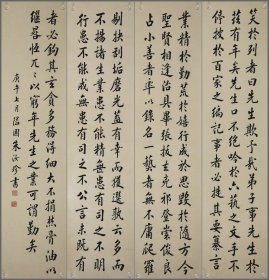 笑於列者曰先生欺予哉弟子事先生於
茲有年矣先生口不絕吟於六藝之文手不
停披於百家之編記事者必提其要纂言
業精於勤荒於嬉行成於思毀於隨方今
聖賢相逢治具畢張拔去兇邪登崇俊良
占小善者率以錄名一藝者無不庸爬羅
剔抉刮垢磨光蓋有幸而獲選孰云多而
不揚諸生業患不能精無患有司之不明
行患不能成無患有司之不公言未既有
者必鈎其玄貪多務得細大不捐焚膏油以
繼晷恆兀兀以窮年先生之業可謂勤矣
庚午七月 朱汝珍書